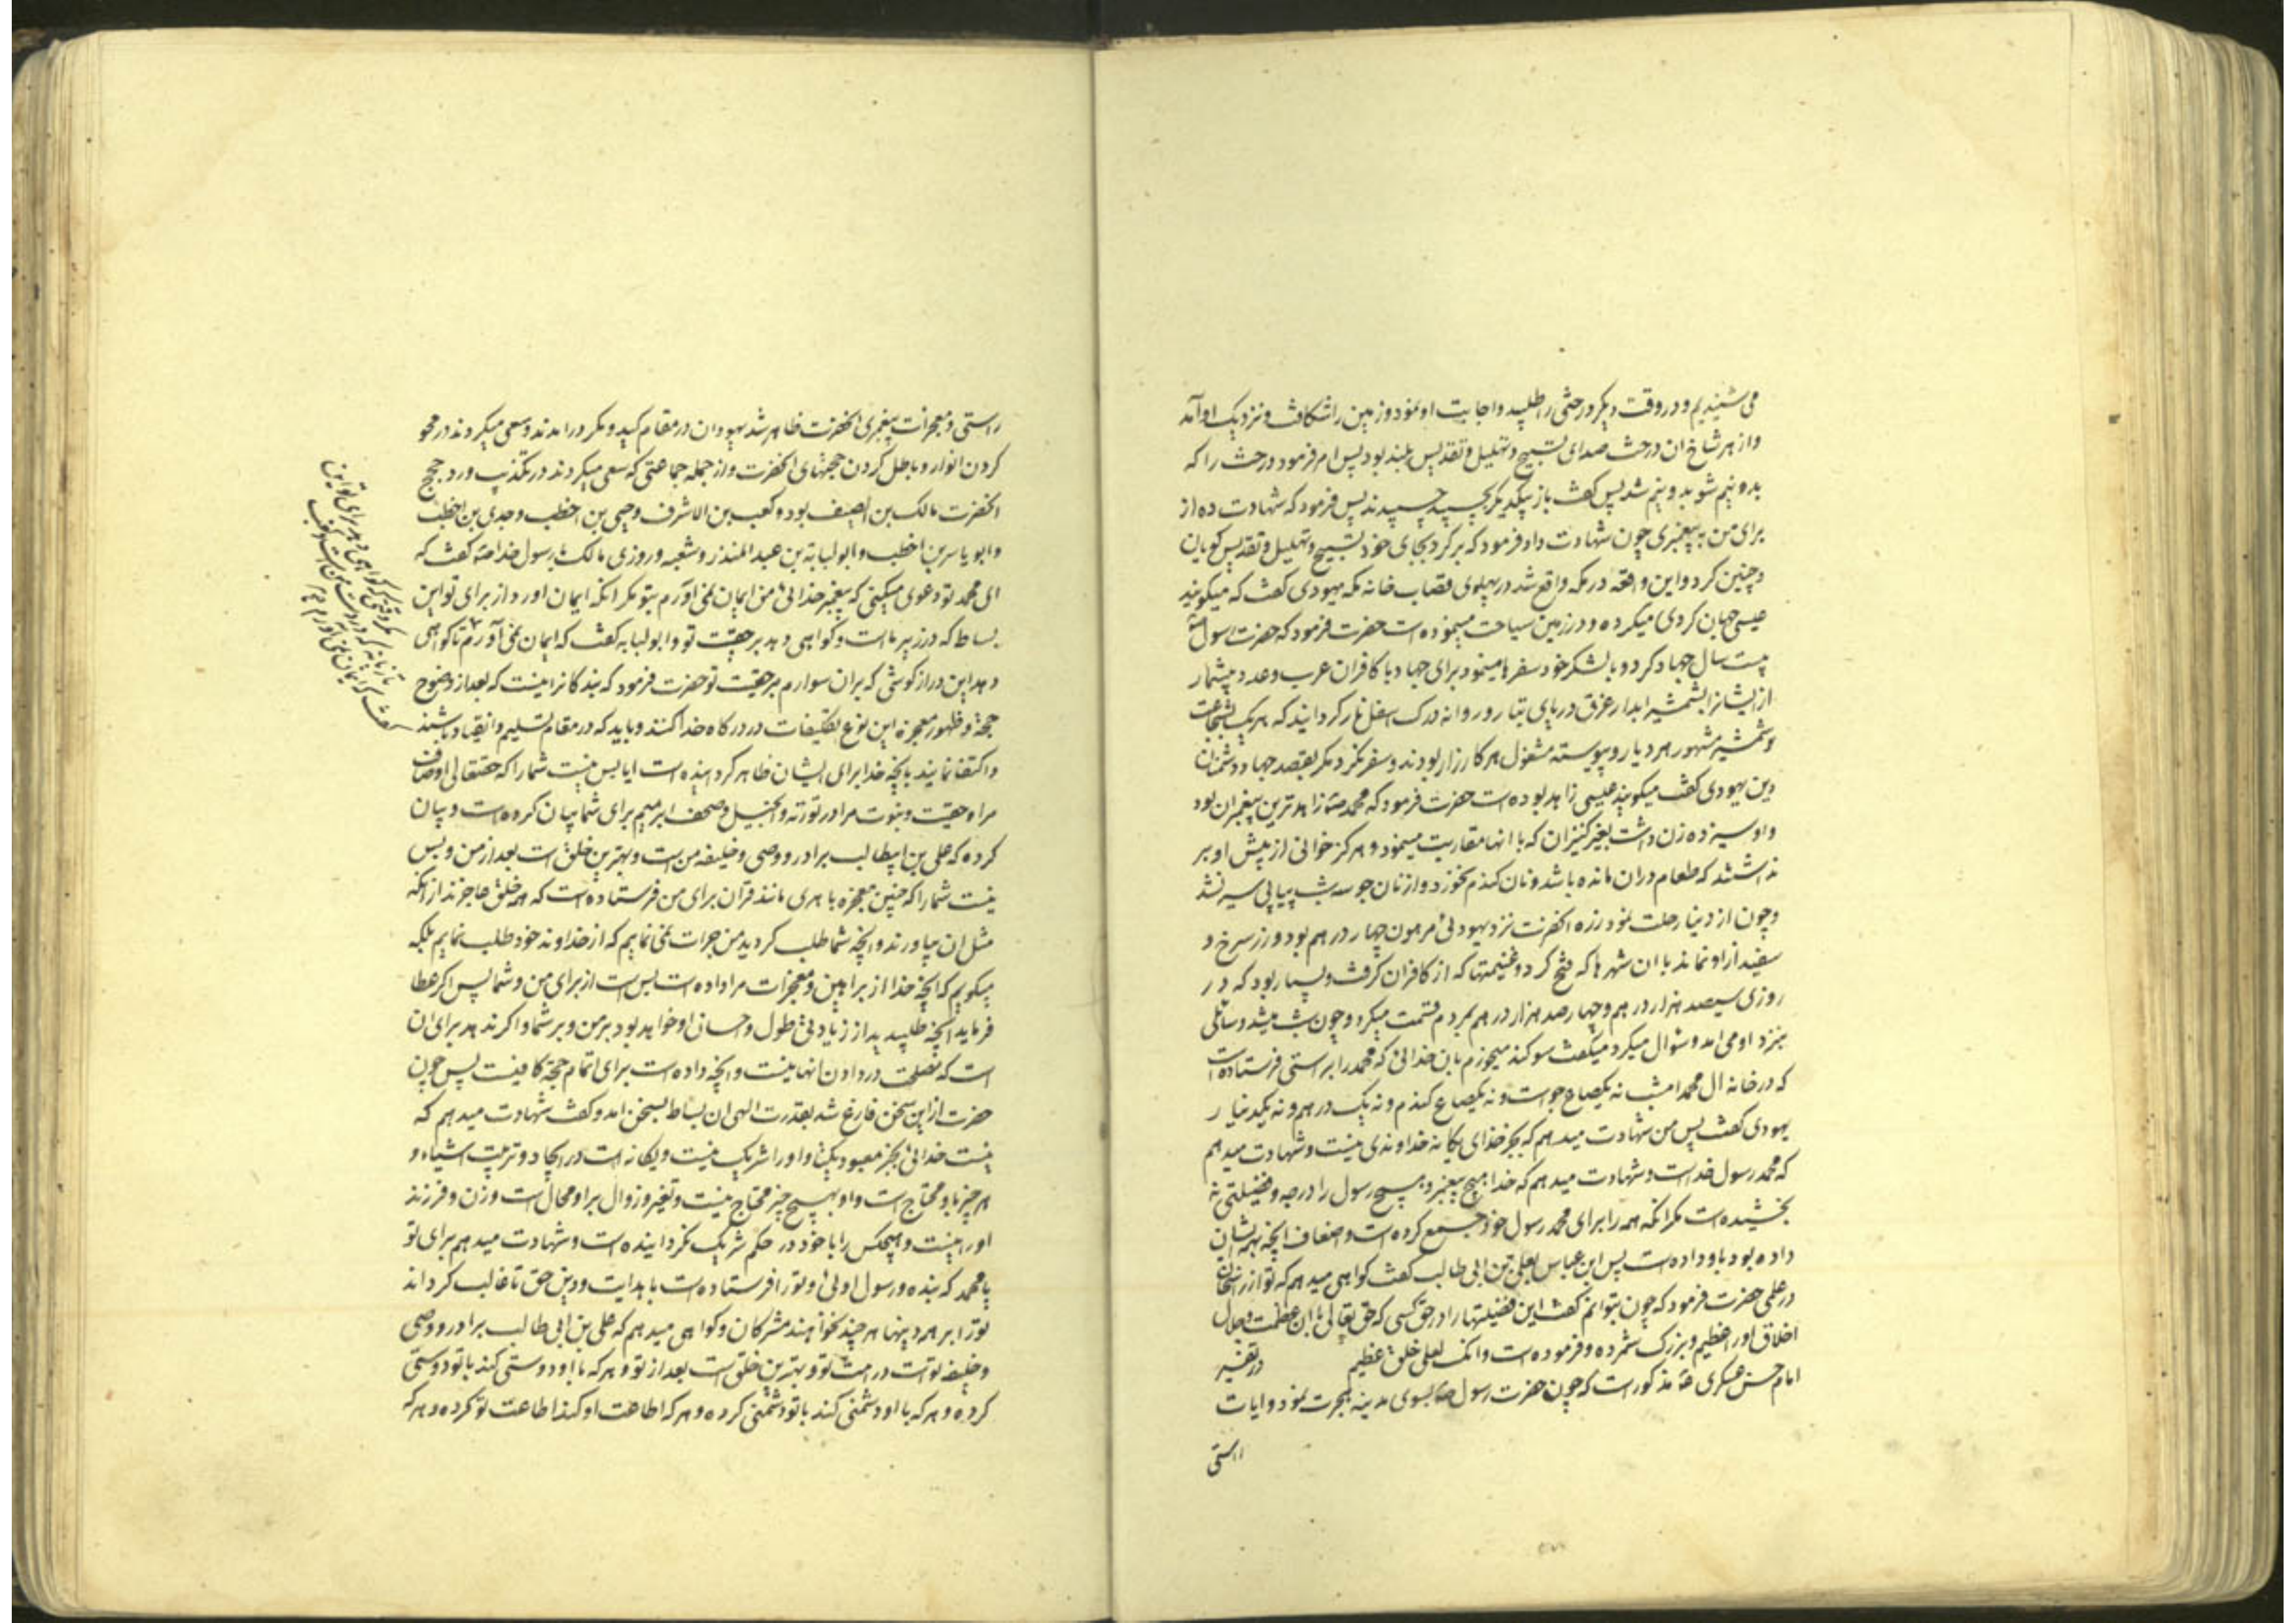 می‌شنیدیم و در وقت دیکر درختی را طلبید و اجابت او نمود و زمین را شکافت و نزدیک او آمد
و از هر شاخ ان درخت صدای تسبیح و تهلیل و تقدیس بلند بود پس امر فرمود درخت را که
بدو نیم شو بدو نیم شد پس کفت باز بیکدیکر بچسپید چسپیدند پس فرمود که شهادت ده از
برای من به پیغمبری چون شهادت داد فرمود که برکرد بجای خود تسبیح و تهلیل و تقدیس کویان
و چنین کرد و این واقعه در مکه واقع شد در پهلوی قصاب خانه مکه یهودی کفت که میکویند
عیسی جهان کردی میکرده و در زمین سیاحت میموده است حضرت فرمود که حضرت رسول
بیست سال جهاد کرد و با لشکر خود سفرها مینمود برای جهاد با کافران عرب و عدد بیشمار
از ایشانرا بشمشیر ابدار غرق دریای تبار و روانه درک اسفل نار کردانید که هر یک بشجاعت
و شمشیر مشهور هر دیار و پیوسته مشغول هر کارزار بودند و سفر نکرد مکر بقصد جهاد دشمنان
دین یهودی کفت میکویند عیسی زاهد بوده است حضرت فرمود که محمد زاهدترین پیغمبران بود
و او سیزده زن داشت بغیر کنیزان که با انها مقاربت مینمود و هرکز خوانی از پیش او بر
نداشتند که طعام دران مانده باشد و نان کندم نخورد و از نان جو سه شب پیاپی سیر نشد
و چون از دنیا رحلت نمود زره انحضرت نزد یهودئی مرهون چهار درهم بود و زر سرخ و
سفید از او نماند با ان شهرها که فتح کرد و غنیمتها که از کافران کرفت و بسیار بود که در
روزی سیصد هزار درهم و چهار صد هزار درهم بمردم قسمت میکرد و چون شب میشد و سائلی
بنزد او می امد و سؤال میکرد میکفت سوکند میخورم بان خدائی که محمد را براستی فرستاده است
که در خانه ال محمد امشب نه یکصاع جو است و نه یکصاع کندم و نه یک درهم و نه یکدینار
یهودی کفت پس من شهادت میدهم که بجز خدای یکانه خداوندی نیست و شهادت میدهم
که محمد رسول خداست و شهادت میدهم که خدا بهیچ پیغمبر و بهیچ رسول را درجه و فضیلتی نه
بخشیده است مکر انکه همه را برای محمد رسول خود جمع کرده است و اضعاف انچه بهمه ایشان
داده بود باو داده است پس ابن عباس بعلی بن ابی طالب کفت کواهی میدهم که تو از راسخان
در علمی حضرت فرمود که چون بتوانم کفت این فضیلتها را در حق کسی که حق تعالی با ان عظمت و جلال
اخلاق او را عظیم و بزرک شمرده و فرموده است وانک لعلی خلق عظیم در تفسیر
امام حسن عسکری مذکور است که چون حضرت رسول بسوی مدینه هجرت نمود و ایات
راستی
راستی و معجزات پیغمبری انحضرت ظاهر شد یهودان در مقام کید و مکر درامدند و سعی میکردند در محو
کردن انوار و باطل کردن حجتهای انحضرت و از جمله جماعتی که سعی میکردند در تکذیب و رد حجج
انحضرت مالک بن الصیف بود و کعب بن الاشرف و حیی بن اخطب و حدی بن اخطب
و ابو یاسر بن اخطب و ابو لبابه بن عبد المنذر و شعبه و روزی مالک با رسول خدا کفت که
ای محمد تو دعوی میکنی که پیغمبر خدائی من ایمان نمی‌آورم بتو مکر انکه ایمان اورد از برای تو این
بساط که در زیر ما است و کواهی دهد بر حقیت تو و ابو لبابه کفت که ایمان نمی‌آورم تا کواهی
دهد این دراز کوشی که بران سوارم بر حقیت تو حضرت فرمود که بندکانرا نیست که بعد از وضوح
حجة و ظهور معجزه این نوع تکلیفات در درکاه خدا کنند و باید که در مقام تسلیم و انقیاد باشند
و اکتفا نمایند بانچه خدا برای ایشان ظاهر کردانیده است ایا بس نیست شما را که حقتعالی اوصاف
مرا و حقیت و نبوت مرا در توریة و انجیل و صحف ابرهیم برای شما بیان کرده است و بیان
کرده که علی بن ابیطالب برادر و وصی و خلیفه من است و بهترین خلق است بعد از من و بس
نیست شما را که چنین معجزه باهری مانند قران برای من فرستاده است که همه خلق عاجزند از انکه
مثل ان بیاورند و انچه شما طلب کردید من جرات نمی‌نمایم که از خداوند خود طلب نمایم بلکه
میکویم که انچه خدا از براهین و معجزات مرا داده است بس است از برای من و شما پس اکر عطا
فرماید انچه طلبیدید از زیادتی طول و احسان او خواهد بود بر من و بر شما و اکر ندهد برای ان
است که مصلحت در دادن انها نیست و انچه داده است برای اتمام حجة کافیست پس چون
حضرت از این سخن فارغ شد بقدرت الهی ان بساط بسخن امد و کفت شهادت میدهم که
نیست خدائی بجز معبود یکتا و او را شریک نیست و یکانه است در ایجاد و ترتیب اشیاء و
هر چیز باو محتاج است و او بهیچ چیز محتاج نیست و تغیر و زوال بر او محال است و زن و فرزند
او را نیست و هیچکس را با خود در حکم شریک نکردانیده است و شهادت میدهم برای تو
یا محمد که بنده و رسول اوئی و تو را فرستاده است با هدایت و دین حق تا غالب کرداند
تو را بر همه دینها هر چند نخواهند مشرکان و کواهی میدهم که علی بن ابی طالب برادر و وصی
و خلیفه تو است در امت تو و بهترین خلق است بعد از تو و هر که با او دوستی کند با تو دوستی
کرده و هر که با او دشمنی کند با تو دشمنی کرده و هر که اطاعت او کند اطاعت تو کرده و هر که
کفت که ایمان نمی‌آورم
تازیانه که در دست من است
مکر وقتی که کواهی دهد برای تو این